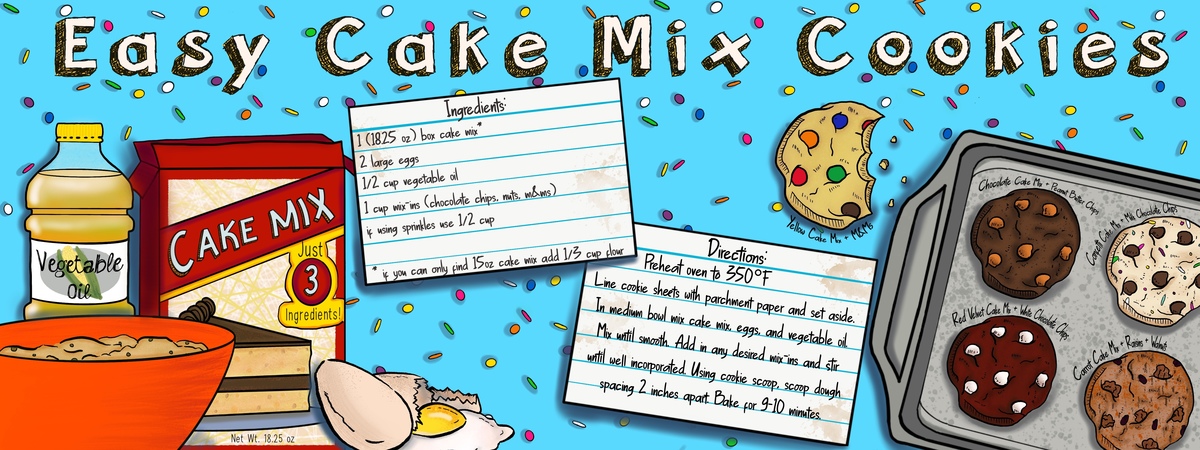 Easy Cake Mix Cookies
Ingredients:
1 (18.25 oz) box cake mix*
2 large eggs
1/2 cup vegetable oil
1 cup mix-ins (chocolate chips, nuts, m&ms)
if using sprinkles use 1/2 cup
* if you can only find 15oz cake mix add 1/3 cup flour
Vegetable
Oil
CAKE MIX
Just
3
Ingredients!
Net Wt. 18.25 oz
Yellow Cake Mix + M&Ms
Directions:
Preheat oven to 350°F
Line cookie sheets with parchment paper and set aside.
In medium bowl mix cake mix, eggs, and vegetable oil.
Mix until smooth. Add in any desired mix-ins and stir
until well incorporated. Using cookie scoop, scoop dough
spacing 2 inches apart. Bake for 9-10 minutes.
Chocolate Cake Mix + Peanut Butter Chips
Confetti Cake Mix + Milk Chocolate Chips
Red Velvet Cake Mix + White Chocolate Chips
Carrot Cake Mix + Raisins + Walnuts